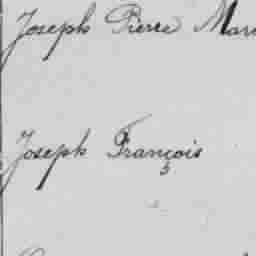 Joseph Pierre Mar
Joseph François